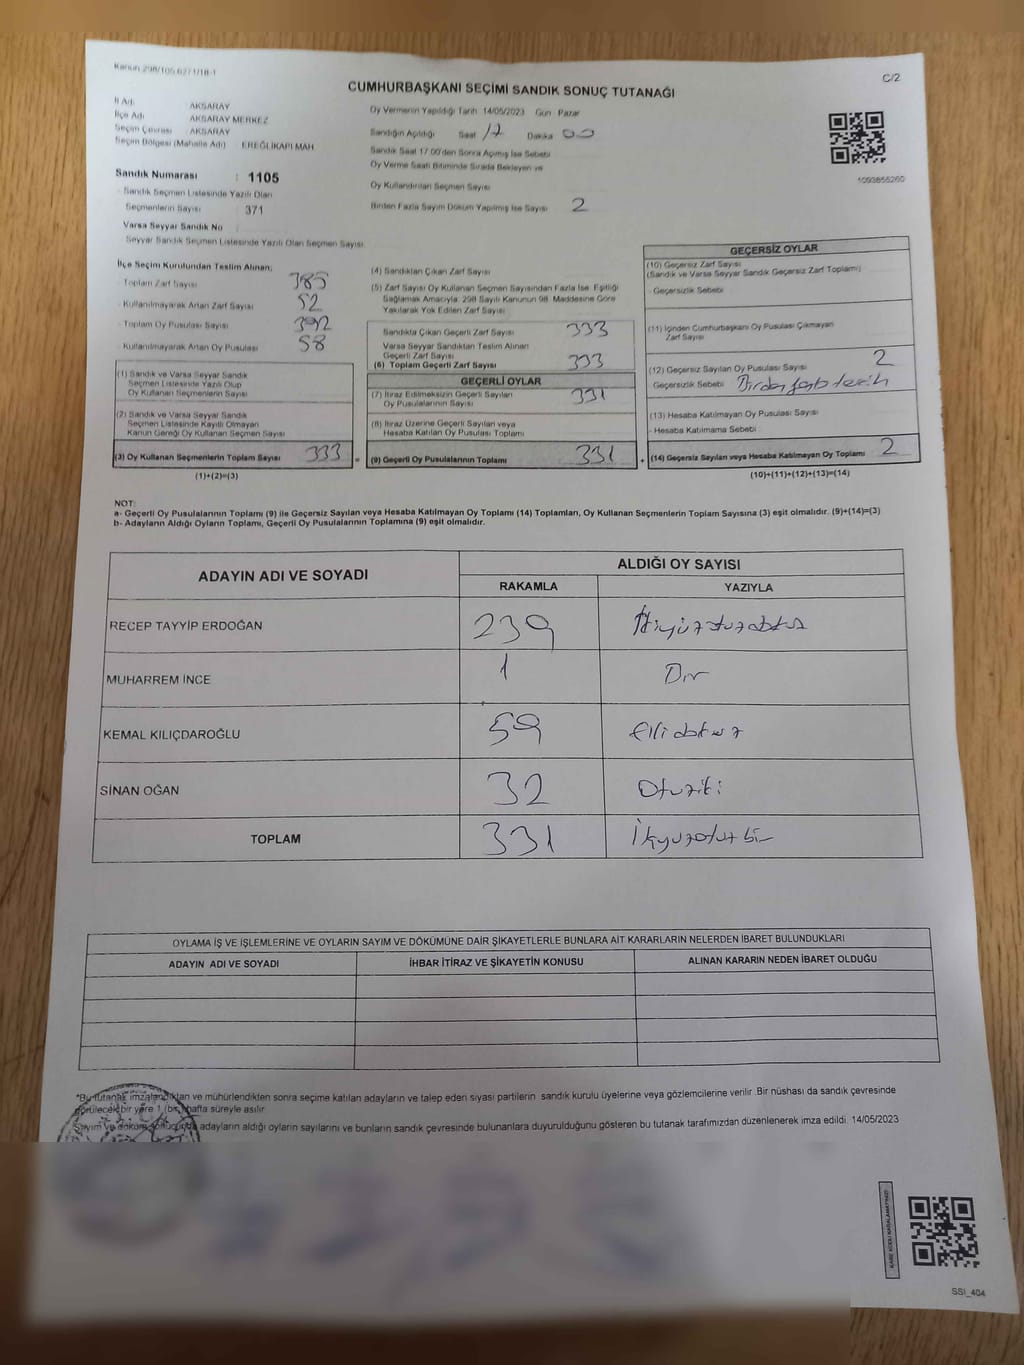 Kanun 298/105.6271/18-1
C/2
CUMHURBAŞKANI SEÇİMİ SANDIK SONUÇ TUTANAĞI
İl Adı AKSARAY
İlçe Adı AKSARAY MERKEZ
Seçim Çevresi AKSARAY
Seçim Bölgesi (Mahalle Adı) EREĞLİKAPI MAH
Oy Vermenin Yapıldığı Tarih 14/05/2023 Gün Pazar
Sandığın Açıldığı Saat 17 Dakika 00
Sandık Saat 17:00'den Sonra Açılmış İse Sebebi
Oy Verme Saati Bitiminde Sırada Bekleyen ve
Oy Kullandırılan Seçmen Sayısı
Birden Fazla Sayım Döküm Yapılmış İse Sayısı 2
1093855260
Sandık Numarası : 1105
- Sandık Seçmen Listesinde Yazılı Olan
Seçmenlerin Sayısı : 371
Varsa Seyyar Sandık No
Seyyar Sandık Seçmen Listesinde Yazılı Olan Seçmen Sayısı
İlçe Seçim Kurulundan Teslim Alınan;
- Toplam Zarf Sayısı 385
- Kullanılmayarak Artan Zarf Sayısı 52
- Toplam Oy Pusulası Sayısı 392
- Kullanılmayarak Artan Oy Pusulası 58
(1) Sandık ve Varsa Seyyar Sandık
Seçmen Listesinde Yazılı Olup
Oy Kullanan Seçmenlerin Sayısı
(2) Sandık ve Varsa Seyyar Sandık
Seçmen Listesinde Kayıtlı Olmayan
Kanun Gereği Oy Kullanan Seçmen Sayısı
(3) Oy Kullanan Seçmenlerin Toplam Sayısı 333 =
(1)+(2)=(3)
(4) Sandıktan Çıkan Zarf Sayısı
(5) Zarf Sayısı Oy Kullanan Seçmen Sayısından Fazla İse Eşitliği
Sağlamak Amacıyla; 298 Sayılı Kanunun 98. Maddesine Göre
Yakılarak Yok Edilen Zarf Sayısı
Sandıkta Çıkan Geçerli Zarf Sayısı 333
Varsa Seyyar Sandıktan Teslim Alınan
Geçerli Zarf Sayısı
(6) Toplam Geçerli Zarf Sayısı 333
GEÇERLİ OYLAR
(7) İtiraz Edilmeksizin Geçerli Sayılan
Oy Pusulalarının Sayısı 331
(8) İtiraz Üzerine Geçerli Sayılan veya
Hesaba Katılan Oy Pusulası Toplamı
(9) Geçerli Oy Pusulalarının Toplamı 331 +
GEÇERSİZ OYLAR
(10) Geçersiz Zarf Sayısı
(Sandık ve Varsa Seyyar Sandık Geçersiz Zarf Toplamı)
- Geçersizlik Sebebi
(11) İçinden Cumhurbaşkanı Oy Pusulası Çıkmayan
Zarf Sayısı
(12) Geçersiz Sayılan Oy Pusulası Sayısı 2
Geçersizlik Sebebi Birden fazla tercih
(13) Hesaba Katılmayan Oy Pusulası Sayısı
- Hesaba Katılmama Sebebi
(14) Geçersiz Sayılan veya Hesaba Katılmayan Oy Toplamı 2
(10)+(11)+(12)+(13)=(14)
NOT:
a- Geçerli Oy Pusulalarının Toplamı (9) ile Geçersiz Sayılan veya Hesaba Katılmayan Oy Toplamı (14) Toplamları, Oy Kullanan Seçmenlerin Toplam Sayısına (3) eşit olmalıdır. (9)+(14)=(3)
b- Adayların Aldığı Oyların Toplamı, Geçerli Oy Pusulalarının Toplamına (9) eşit olmalıdır.
ADAYIN ADI VE SOYADI
ALDIĞI OY SAYISI
RAKAMLA YAZIYLA
RECEP TAYYİP ERDOĞAN 239 İkiyüzotuzdokuz
MUHARREM İNCE 1 Bir
KEMAL KILIÇDAROĞLU 59 Ellidokuz
SİNAN OĞAN 32 Otuziki
TOPLAM 331 İkiyüzotuzbir
OYLAMA İŞ VE İŞLEMLERİNE VE OYLARIN SAYIM VE DÖKÜMÜNE DAİR ŞİKAYETLERLE BUNLARA AİT KARARLARIN NELERDEN İBARET BULUNDUKLARI
ADAYIN ADI VE SOYADI İHBAR İTİRAZ VE ŞİKAYETİN KONUSU ALINAN KARARIN NEDEN İBARET OLDUĞU
*Bu tutanak imzalandıktan ve mühürlendikten sonra seçime katılan adayların ve talep eden siyasi partilerin sandık kurulu üyelerine veya gözlemcilerine verilir. Bir nüshası da sandık çevresinde
görülecek bir yere 1 (bir) hafta süreyle asılır.
Sayım ve döküm sonucunda adayların aldığı oyların sayılarını ve bunların sandık çevresinde bulunanlara duyurulduğunu gösteren bu tutanak tarafımızdan düzenlenerek imza edildi. 14/05/2023
KARE KODU KARALAMAYINIZ!
SSI_404